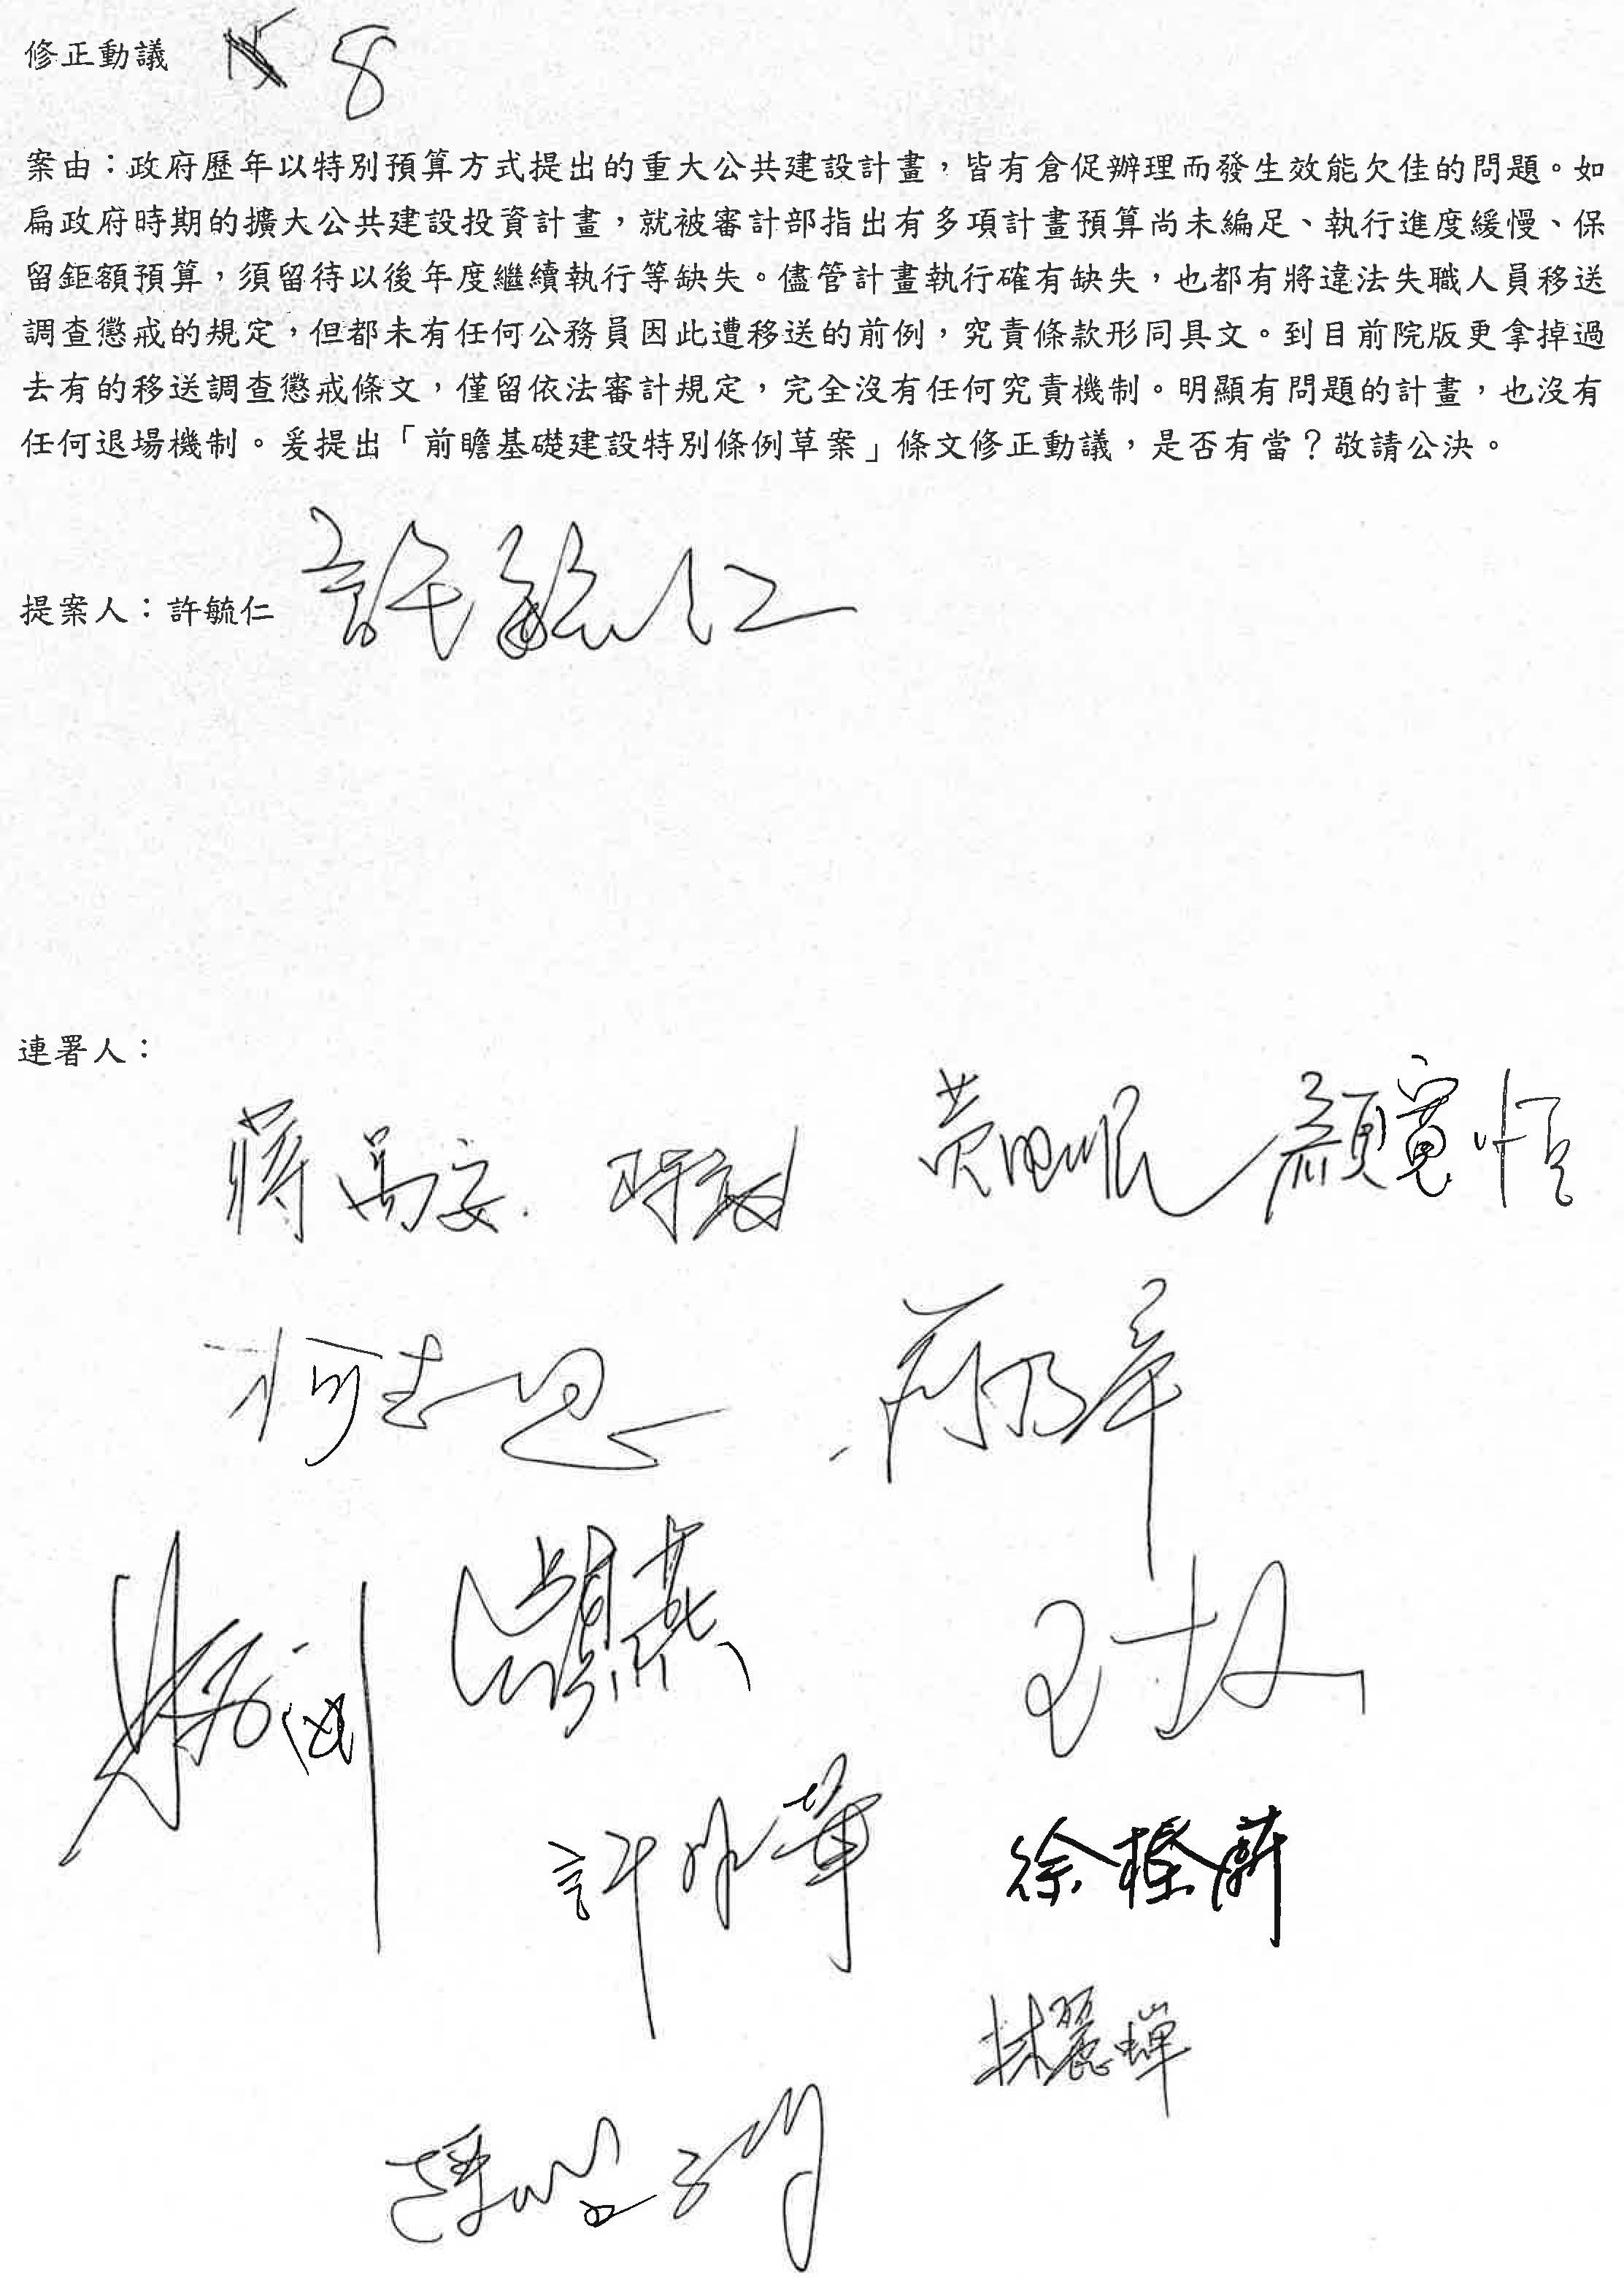 修正動議 8
案由：政府歷年以特別預算方式提出的重大公共建設計畫，皆有倉促辦理而發生效能欠佳的問題。如
扁政府時期的擴大公共建設投資計畫，就被審計部指出有多項計畫預算尚未編足、執行進度緩慢、保
留鉅額預算，須留待以後年度繼續執行等缺失。儘管計畫執行確有缺失，也都有將違法失職人員移送
調查懲戒的規定，但都未有任何公務員因此遭移送的前例，究責條款形同具文。到目前院版更拿掉過
去有的移送調查懲戒條文，僅留依法審計規定，完全沒有任何究責機制。明顯有問題的計畫，也沒有
任何退場機制。爰提出「前瞻基礎建設特別條例草案」條文修正動議，是否有當？敬請公決。
提案人：許毓仁 許毓仁
連署人：
蔣萬安 黃昭順 顏寬恒
柯志恩 蔣乃辛
徐榛蔚
林麗蟬